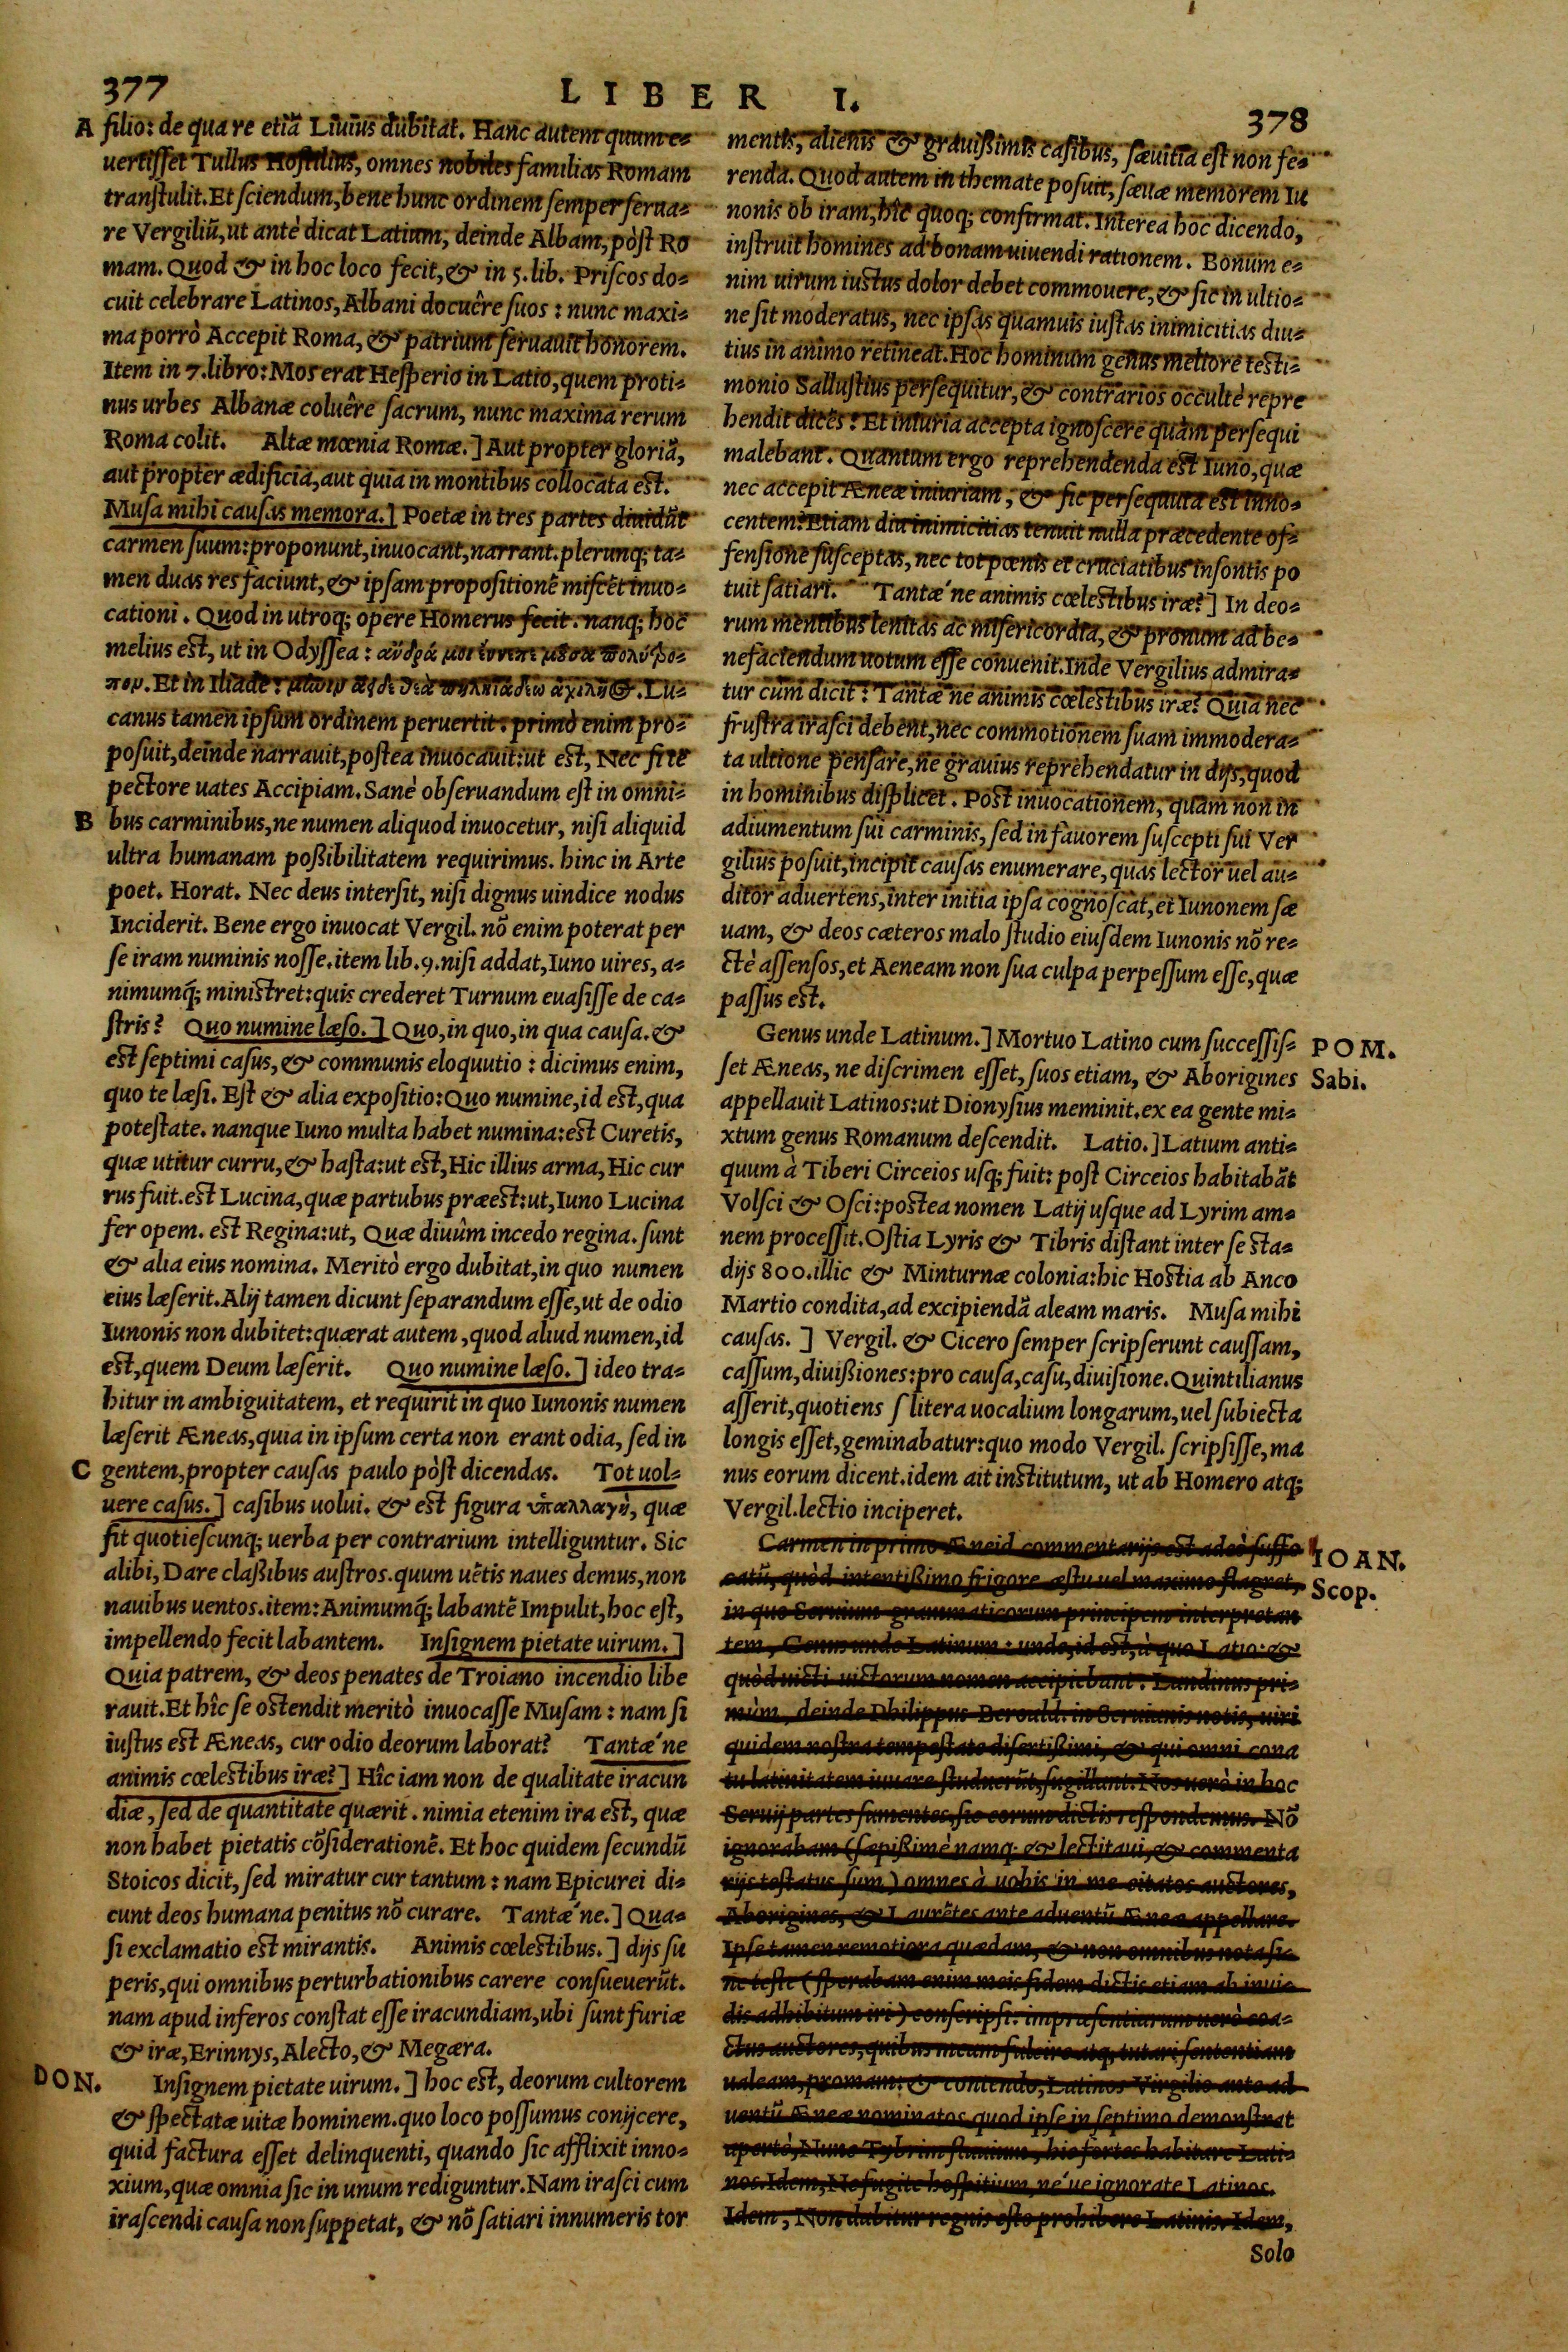 377
LIBER I.
378
A filio: de qua re etiã Liuius dubitat. Hanc autem quum e-
uertisset Tullus Hostilius, omnes nobiles familias Romam
transtulit. Et sciendum, bene hunc ordinem semper serua-
re Vergiliũ, ut antè dicat Latium, deinde Albam, pòst Ro
mam. Quod & in hoc loco fecit, & in 5. lib. Priscos do-
cuit celebrare Latinos, Albani docuêre suos: nunc maxi-
ma porrò Accepit Roma, & patrium seruauit honorem.
Item in 7. libro: Mos erat Hesperio in Latio, quem proti-
nus urbes Albanæ coluêre sacrum, nunc maxima rerum
Roma colit. Altæ mœnia Romæ.] Aut propter gloriã,
aut propter ædificia, aut quia in montibus collocata est.
Musa mihi causas memora.] Poetæ in tres partes diuidũt
carmen suum: proponunt, inuocant, narrant. plerunq; ta-
men duas res faciunt, & ipsam propositionẽ miscẽt inuo-
cationi. Quod in utroq; opere Homerus fecit. nanq; hoc
melius est, ut in Odyssea: ἄνδρά μοι ἔννεπε μοῦσα πολύτρο-
πον. Et in Iliade: μῆνιν ἄειδε θεὰ πηληϊάδεω ἀχιλῆος. Lu-
canus tamen ipsum ordinem peruertit: primò enim pro-
posuit, deinde narrauit, postea inuocauit: ut est, Nec si te
pectore uates Accipiam. Sanè obseruandum est in omni-
B bus carminibus, ne numen aliquod inuocetur, nisi aliquid
ultra humanam poßibilitatem requirimus. hinc in Arte
poet. Horat. Nec deus intersit, nisi dignus uindice nodus
Inciderit. Bene ergo inuocat Vergil. nõ enim poterat per
se iram numinis nosse. item lib. 9. nisi addat, Iuno uires, a-
nimumq́; ministret: quis crederet Turnum euasisse de ca-
stris? Quo numine læso.] Quo, in quo, in qua causa. &
est septimi casus, & communis eloquutio: dicimus enim,
quo te læsi. Est & alia expositio: Quo numine, id est, qua
potestate. nanque Iuno multa habet numina: est Curetis,
quæ utitur curru, & hasta: ut est, Hic illius arma, Hic cur
rus fuit. est Lucina, quæ partubus præest: ut, Iuno Lucina
fer opem. est Regina: ut, Quæ diuûm incedo regina. sunt
& alia eius nomina. Meritò ergo dubitat, in quo numen
eius læserit. Alij tamen dicunt separandum esse, ut de odio
Iunonis non dubitet: quærat autem, quod aliud numen, id
est, quem Deum læserit. Quo numine læso.] ideo tra-
hitur in ambiguitatem, et requirit in quo Iunonis numen
læserit Æneas, quia in ipsum certa non erant odia, sed in
C gentem, propter causas paulo pòst dicendas. Tot uol-
uere casus.] casibus uolui. & est figura ὑπαλλαγὴ, quæ
fit quotiescunq; uerba per contrarium intelliguntur. Sic
alibi, Dare claßibus austros. quum uẽtis naues demus, non
nauibus uentos. item: Animumq́; labantẽ Impulit, hoc est,
impellendo fecit labantem. Insignem pietate uirum.]
Quia patrem, & deos penates de Troiano incendio libe
rauit. Et hîc se ostendit meritò inuocasse Musam: nam si
iustus est Æneas, cur odio deorum laborat? Tantæ´ne
animis cœlestibus iræ?] Hîc iam non de qualitate iracun
diæ, sed de quantitate quærit. nimia etenim ira est, quæ
non habet pietatis cõsiderationẽ. Et hoc quidem secundũ
Stoicos dicit, sed miratur cur tantum: nam Epicurei di-
cunt deos humana penitus nõ curare. Tantæ´ne.] Qua-
si exclamatio est mirantis. Animis cœlestibus.] dijs su
peris, qui omnibus perturbationibus carere consueuerũt.
nam apud inferos constat esse iracundiam, ubi sunt furiæ
& iræ, Erinnys, Alecto, & Megæra.
DON. Insignem pietate uirum.] hoc est, deorum cultorem
& spectatæ uitæ hominem. quo loco possumus conijcere,
quid factura esset delinquenti, quando sic afflixit inno-
xium, quæ omnia sic in unum rediguntur. Nam irasci cum
irascendi causa non suppetat, & nõ satiari innumeris tor
mentis, alienis & grauißimis casibus, sæuitia est non fe-
renda. Quod autem in themate posuit, sæuæ memorem Iu
nonis ob iram, hîc quoq; confirmat. Interea hoc dicendo,
instruit homines ad bonam uiuendi rationem. Bonum e-
nim uirum iustus dolor debet commouere, & sic in ultio-
ne sit moderatus, nec ipsas quamuis iustas inimicitias diu-
tius in animo retineat. Hoc hominum genus meliore testi-
monio Sallustius persequitur, & contrarios occultè repre
hendit dices: Et iniuria accepta ignoscere quàm persequi
malebant. Quantum ergo reprehendenda est Iuno, quæ
nec accepit Æneæ iniuriam, & sic persequuta est inno-
centem? Etiam diu inimicitias tenuit nulla præcedente of-
fensione susceptas, nec tot pœnis et cruciatibus insontis po
tuit satiari. Tantæ´ne animis cœlestibus iræ?] In deo-
rum mentibus lenitas ac misericordia, & pronum ad be-
nefaciendum uotum esse conuenit. Inde Vergilius admira-
tur cùm dicit: Tantæ´ne animis cœlestibus iræ? Quia nec
frustra irasci debent, nec commotionem suam immodera-
ta ultione pensare, ne grauius reprehendatur in dijs, quod
in hominibus displicet. Post inuocationem, quam non in
adiumentum sui carminis, sed in fauorem suscepti sui Ver
gilius posuit, incipit causas enumerare, quas lector uel au-
ditor aduertens, inter initia ipsa cognoscat, et Iunonem sæ
uam, & deos cæteros malo studio eiusdem Iunonis nõ re-
ctè assensos, et Aeneam non sua culpa perpessum esse, quæ
passus est.
Genus unde Latinum.] Mortuo Latino cum successis- POM.
set Æneas, ne discrimen esset, suos etiam, & Aborigines Sabi.
appellauit Latinos: ut Dionysius meminit. ex ea gente mi-
xtum genus Romanum descendit. Latio.] Latium anti-
quum à Tiberi Circeios usq; fuit: post Circeios habitabãt
Volsci & Osci: postea nomen Latij usque ad Lyrim am-
nem processit. Ostia Lyris & Tibris distant inter se sta-
dijs 800. illic & Minturnæ colonia: hic Hostia ab Anco
Martio condita, ad excipiendã aleam maris. Musa mihi
causas.] Vergil. & Cicero semper scripserunt caussam,
cassum, diuißiones: pro causa, casu, diuisione. Quintilianus
asserit, quotiens s litera uocalium longarum, uel subiecta
longis esset, geminabatur: quo modo Vergil. scripsisse, ma
nus eorum dicent. idem ait institutum, ut ab Homero atq;
Vergil. lectio inciperet.
Carmen in primo Æneid. commentarijs est adeò suffo IOAN.
catũ, quòd intentißimo frigore æstu uel maximo flagret, Scop.
in quo Seruium grammaticorum principem interpretan
tem, Genus unde Latinum: unde, id est, à quo Latio: &
quòd uicti uictorum nomen accipiebant. Landinus pri-
mùm, deinde Philippus Beroald. in Seruianis notis, uiri
quidem nostra tempestate disertißimi, & qui omni cona
tu latinitatem iuuare studuerũt, sugillant. Nos uerò in hoc
Seruij partes sumentes, sic eorum dictis respondemus. Nõ
ignorabam (sæpißimè namq. & lectitaui, & commenta
rijs testatus sum) omnes à uobis in me citatos auctores,
Aborigines, & Laurẽtes ante aduentũ Æneæ appellare.
Ipse tamen remotiora quædam, & non omnibus nota si-
ne teste (sperabam enim meis fidem dictis etiam ab inui-
dis adhibitum iri) conscripsi. impræsentiarum uerò coa-
ctus auctores, quibus meam fulcire atq; tutari sententiam
ualeam, promam: & contendo, Latinos Virgilio ante ad
uentũ Æneæ nominatos, quod ipse in septimo demonstrat
apertè, Nunc Tybrim fluuium, hic fortes habitare Lati-
nos. Idem, Ne fugite hospitium, ne´ue ignorate Latinos.
Idem, Non dabitur regnis esto prohibere Latinis. Idem,
Solo